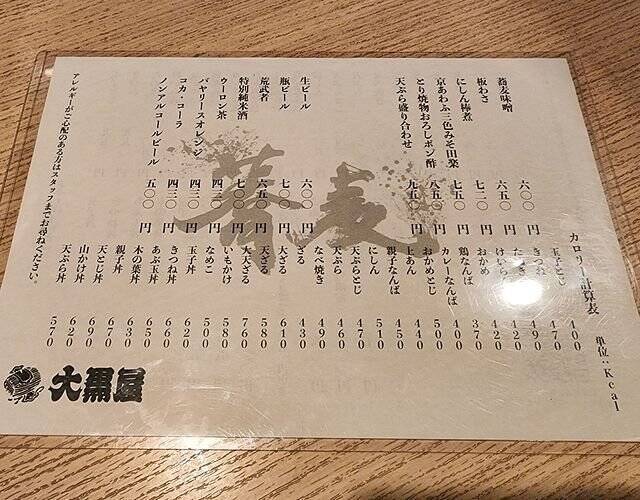 蕎麦味噌 六〇〇円
板わさ 六五〇円
にしん棒煮 七二〇円
京あわふ三色みそ田楽 七五〇円
とり焼物おろしポン酢 八五〇円
天ぷら盛り合わせ 九五〇円
生ビール 六〇〇円
瓶ビール 七〇〇円
荒武者 六五〇円
特別純米酒 七〇〇円
ウーロン茶 四三〇円
バヤリースオレンジ 四三〇円
コカ・コーラ 四三〇円
ノンアルコールビール 五〇〇円
アレルギーがご心配のある方はスタッフまでお尋ねください。
蕎麦
カロリー計算表 単位：Kcal
玉子とじ 400
きつね 470
490
けいらん 420
おかめ 420
鶏なんば 370
カレーなんば 400
おかめとじ 500
上あん 440
親子なんば 450
にしん 510
天ぷらとじ 470
天ぷら 460
なべ焼き 490
ざる 480
大ざる 610
天ざる 580
大天ざる 760
いもかけ 580
なめこ 500
玉子丼 620
きつね丼 660
あぶ玉丼 650
木の葉丼 630
親子丼 670
天とじ丼 690
山かけ丼 620
天ぷら丼 570
大黒屋